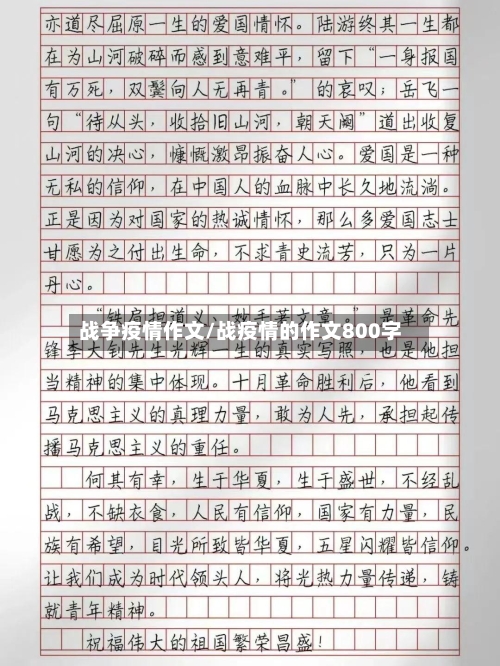 亦道尽屈原一生的爱国情怀。陆游终其一生都
在为山河破碎而感到意难平，留下“一身报国
有万死，双鬓向人无再青。”的哀叹；岳飞一
句“待从头，收拾旧山河，朝天阙”道出收复
山河的决心，慷慨激昂振奋人心。爱国是一种
无私的信仰，在中国人的血脉中长久地流淌。
正是因为对国家的热诚情怀，那么多爱国志士
甘愿为之付出生命，不求青史流芳，只为一片
丹心。
“铁肩担道义，妙手著文章。”是革命先
战争疫情作文/战疫情的作文800字
锋李大钊先生光辉一生的真实写照，也是他担
当精神的集中体现。十月革命胜利后，他看到
马克思主义的真理力量，敢为人先，承担起传
播马克思主义的重任。
何其有幸，生于华夏，生于盛世，不经乱
战，不缺衣食，人民有信仰，国家有力量，民
族有希望，目光所致皆华夏，五星闪耀皆信仰。
让我们成为时代领头人，将光热力量传递，铸
就青年精神。
祝福伟大的祖国繁荣昌盛！